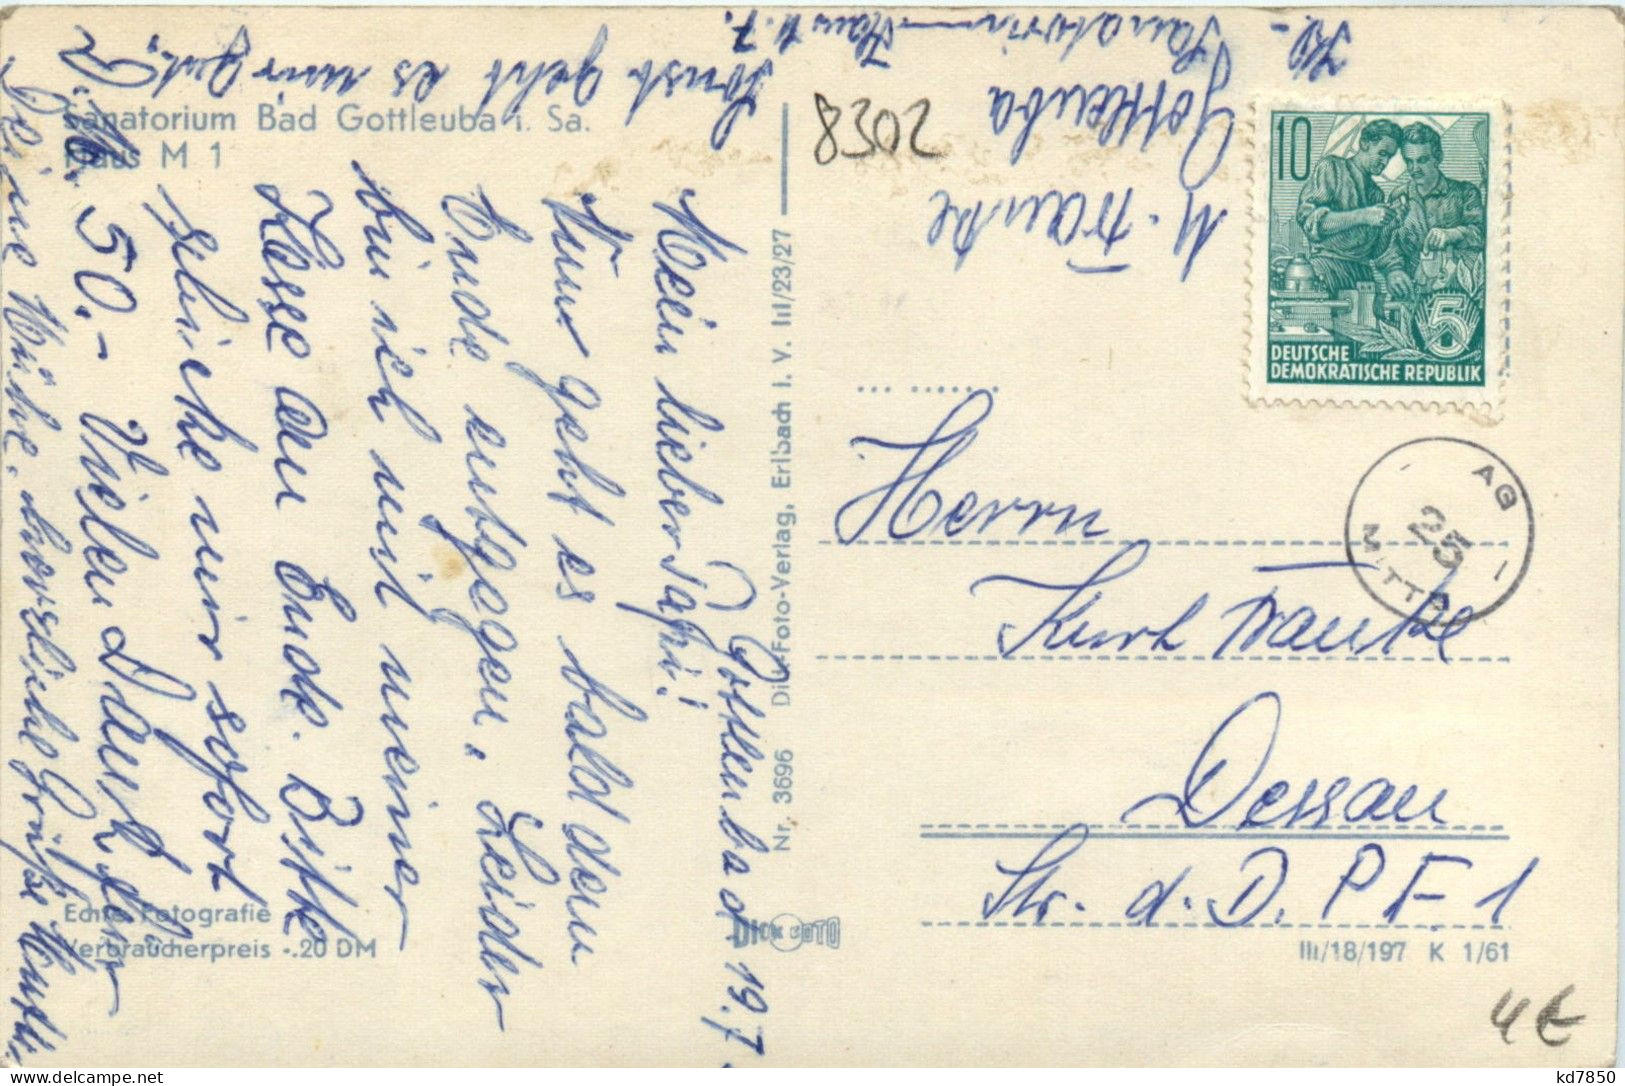 Sanatorium Bad Gottleuba i. Sa.
Haus M 1
Gottleuba d. 19.7.
Mein lieber Papi!
Nun geht es bald dem
Ende entgegen. Leider
bin ich mit meiner
Kasse am Ende. Bitte
schicke mir sofort
M. 50.- Vielen Dank für
Deine Mühe. herzliche Grüße Mutti.
Sonst geht es mir gut.
Echte Fotografie
Verbraucherpreis -.20 DM
Nr. 3696 Dick-Foto-Verlag, Erlbach i. V. III/23/27
DICK FOTO
M. Franke
Gottleuba
Sanatorium Haus M. 7.
8302
10
5
DEUTSCHE
DEMOKRATISCHE REPUBLIK
25
Herrn
Kurt Franke
Dessau
Str. d. D. P F 1
III/18/197 K 1/61
4€
kd7850